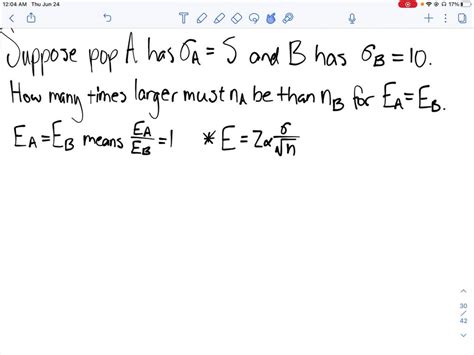 12:04 AM Thu Jun 24
17%
Suppose pop A has σA = 5 and B has σB = 10.
How many times larger must nA be than nB for EA = EB.
EA = EB means EA/EB = 1 * E = Zα σ/√n
30
/
42